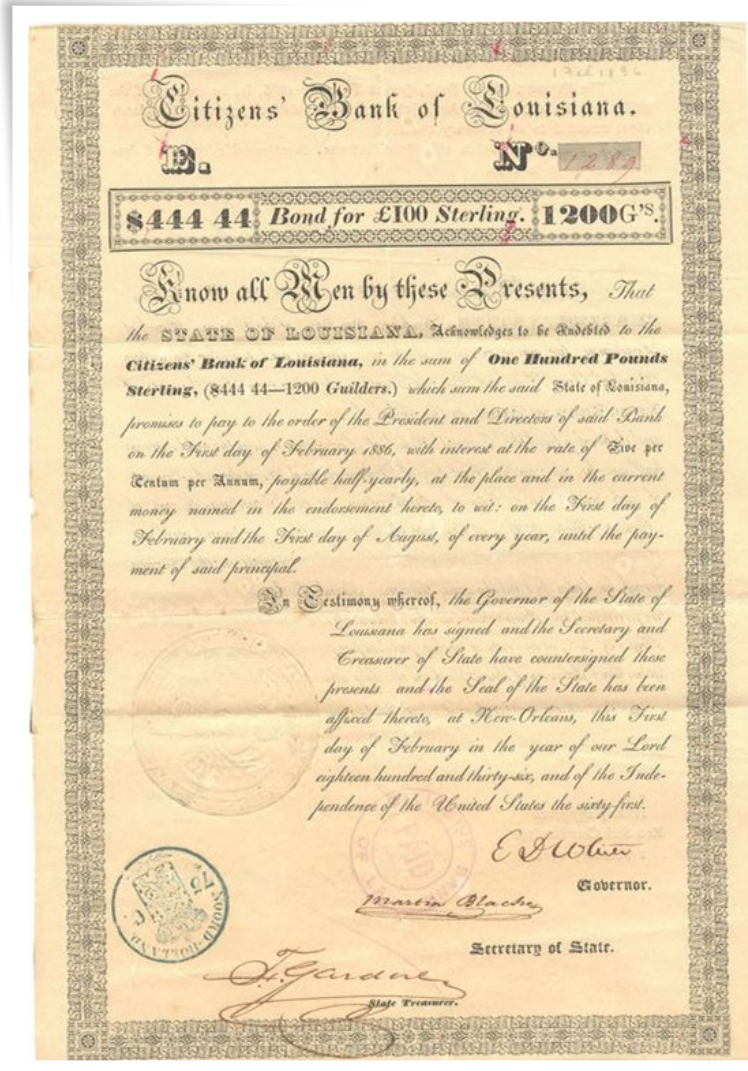 1 Feb 1836
Citizens' Bank of Louisiana.
E.
No. 1289
$444 44 Bond for £100 Sterling. 1200 G'S.
Know all Men by these Presents, That
the STATE OF LOUISIANA, Acknowledges to be Indebted to the
Citizens' Bank of Louisiana, in the sum of One Hundred Pounds
Sterling, ($444 44—1200 Guilders.) which sum the said State of Louisiana,
promises to pay to the order of the President and Directors of said Bank
on the First day of February 1886, with interest at the rate of Five per
Centum per Annum, payable half-yearly, at the place and in the current
money named in the endorsement hereto, to wit: on the First day of
February and the First day of August, of every year, until the pay-
ment of said principal.
In Testimony whereof, the Governor of the State of
Louisiana has signed and the Secretary and
Treasurer of State have countersigned these
presents and the Seal of the State has been
affixed thereto, at New-Orleans, this First
day of February in the year of our Lord
eighteen hundred and thirty-six, and of the Inde-
pendence of the United States the sixty-first.
E D White
Governor.
PAID
Martin Blache
Secretary of State.
NOORD-HOLLAND
F. Gardere
State Treasurer.